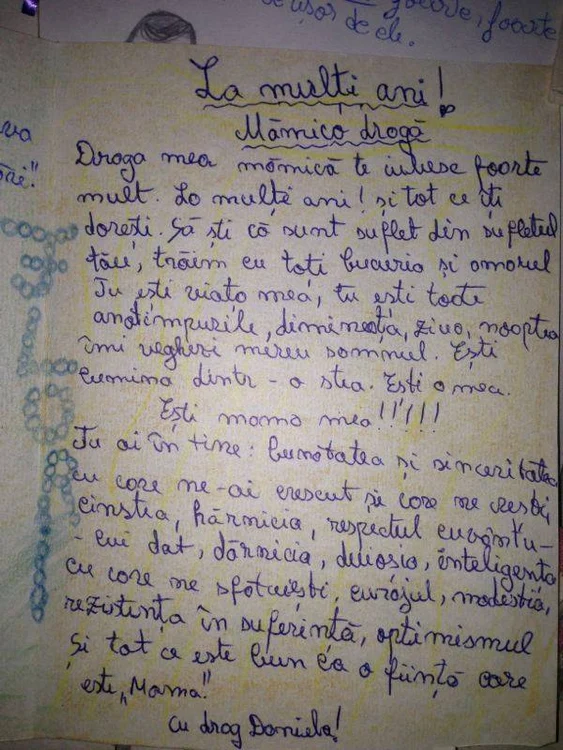 de ușor                 foarte
de ele.
va
La mulți ani!
Mămico dragă
Draga mea mămică te iubesc foarte
mult. La mulți ani! și tot ce iți
dorești. Să ști că sunt suflet din sufletul
tău, trăim cu toți bucuria și amorul
Tu ești viața mea, tu ești toate
anotimpurile, dimineața, ziua, noaptea
îmi veghezi mereu somnul. Ești
lumina dintr-o stea. Ești a mea.
Ești mama mea!!!!!!
Tu ai în tine: bunătatea și sinceritatea
cu care ne-ai crescut și care ne crești,
cinstea, hărnicia, respectul cuvântu-
-lui dat, dărnicia, duioșia, inteligența
cu care ne sfătuiești, curajul, modestia,
rezistența în suferință, optimismul
și tot ce este bun la o ființă care
este „Mama".
cu drag Daniela!